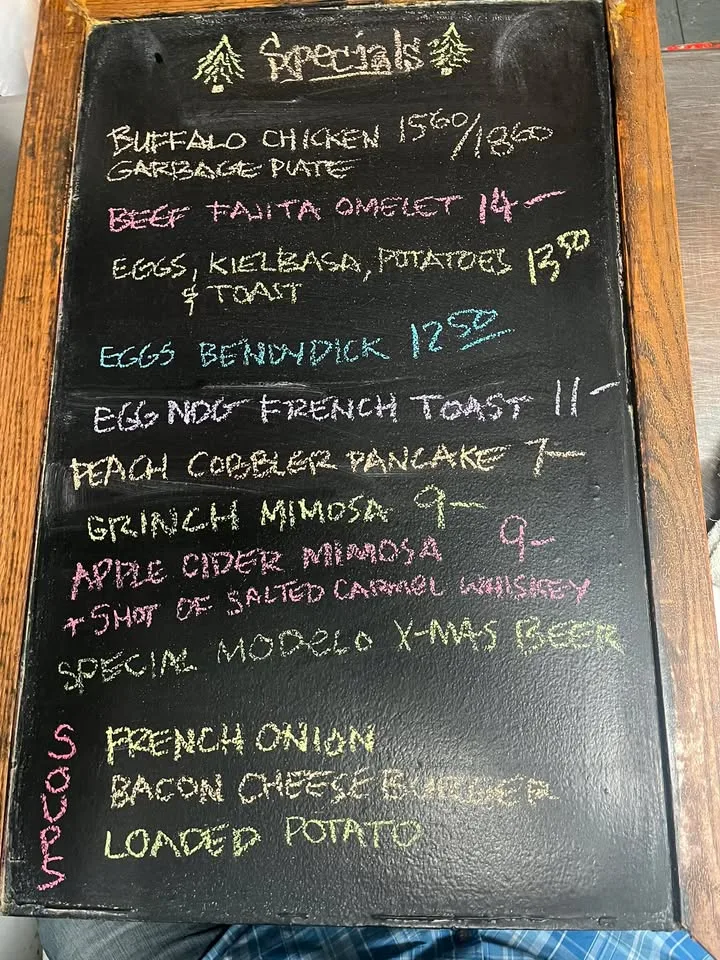 Specials
BUFFALO CHICKEN 1560/1860
GARBAGE PLATE
BEEF FAJITA OMELET 14-
EGGS, KIELBASA, POTATOES 13 50
& TOAST
EGGS BENDYDICK 12 50
EGG NOG FRENCH TOAST 11-
PEACH COBBLER PANCAKE 7-
GRINCH MIMOSA 9-
APPLE CIDER MIMOSA 9-
+ SHOT OF SALTED CARMEL WHISKEY
SPECIAL MODELO X-MAS BEER
SOUPS
FRENCH ONION
BACON CHEESE BURGER
LOADED POTATO